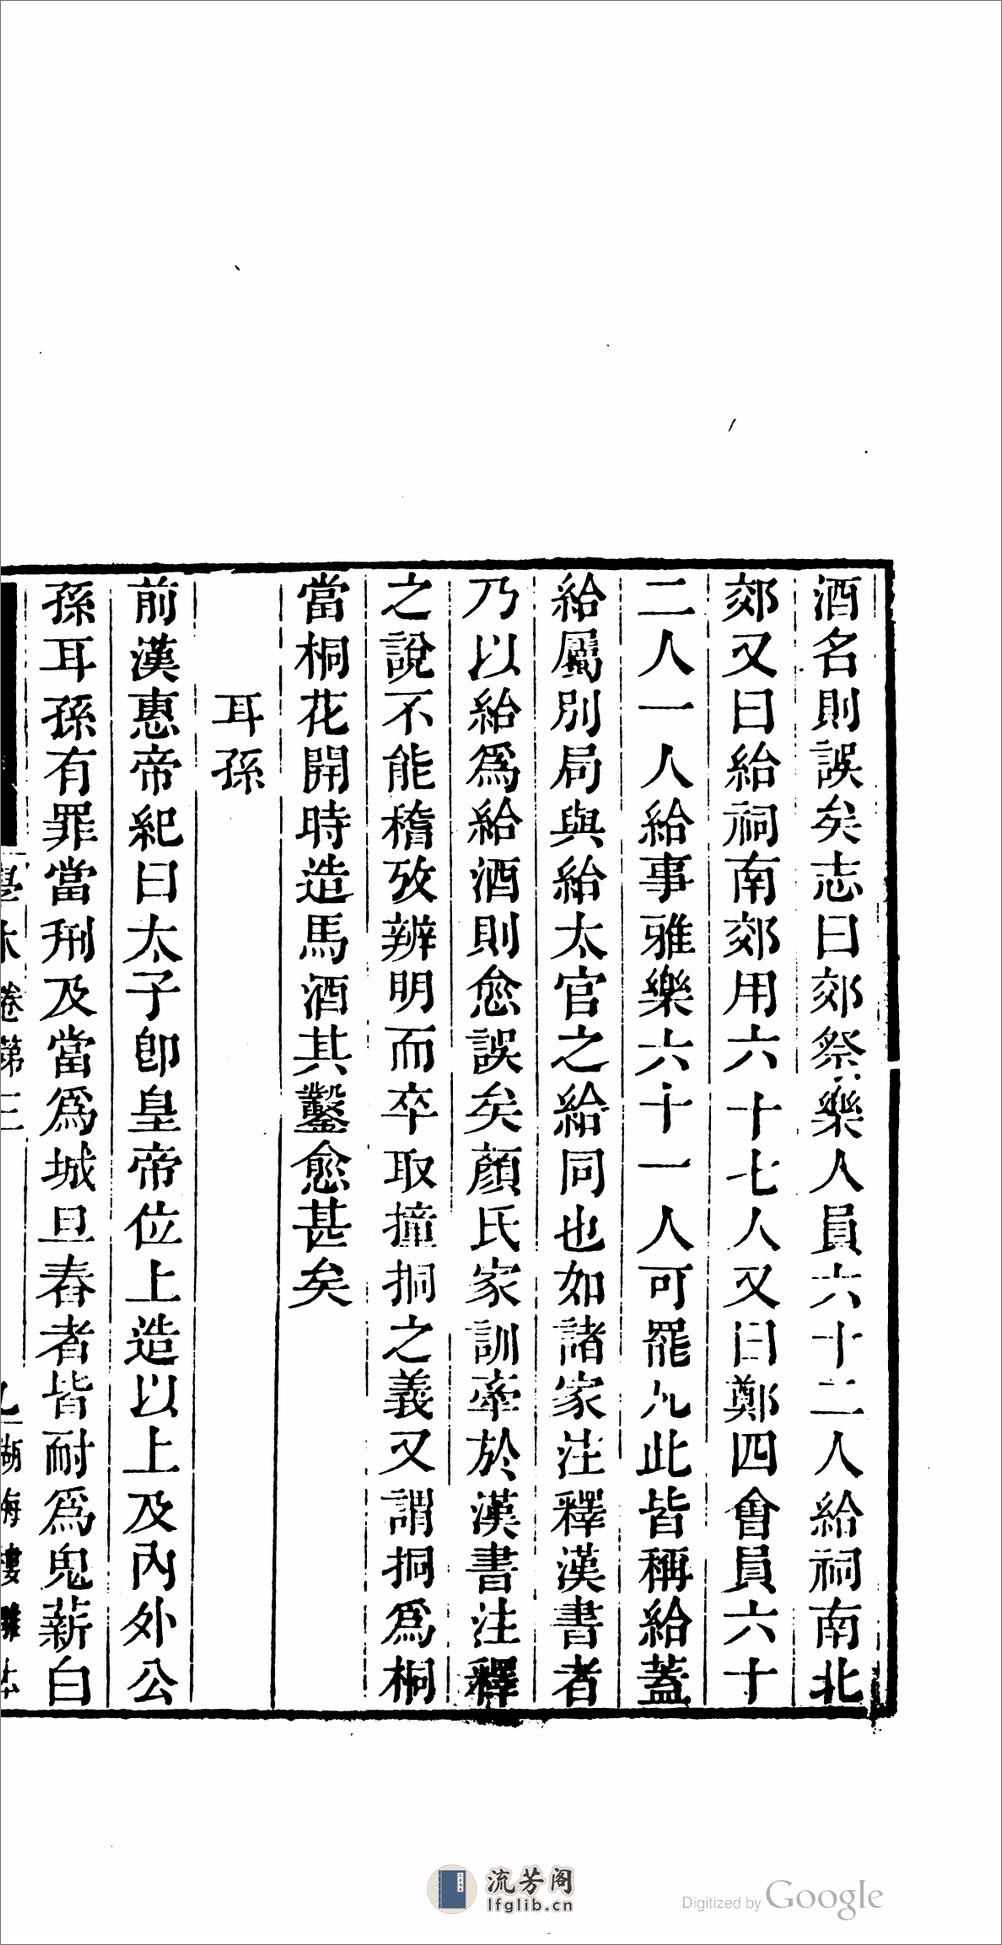 酒名則誤矣志曰郊祭樂人員六十二人給祠南北
郊又曰給祠南郊用六十七人又曰鄭四會員六十
二人一人給事雅樂六十一人可罷凡此皆稱給蓋
給屬別局與給太官之給同也如諸家注釋漢書者
乃以給爲給酒則愈誤矣顏氏家訓牽於漢書注釋
之說不能稽攷辨明而卒取撞挏之義又謂挏爲桐
當桐花開時造馬酒其鑿愈甚矣
耳孫
前漢惠帝紀曰太子卽皇帝位上造以上及內外公
孫耳孫有罪當刑及當爲城旦舂者皆耐爲鬼薪白
學林卷第三
湖海樓雕本
流芳阁
lfglib.cn
Digitized by Google